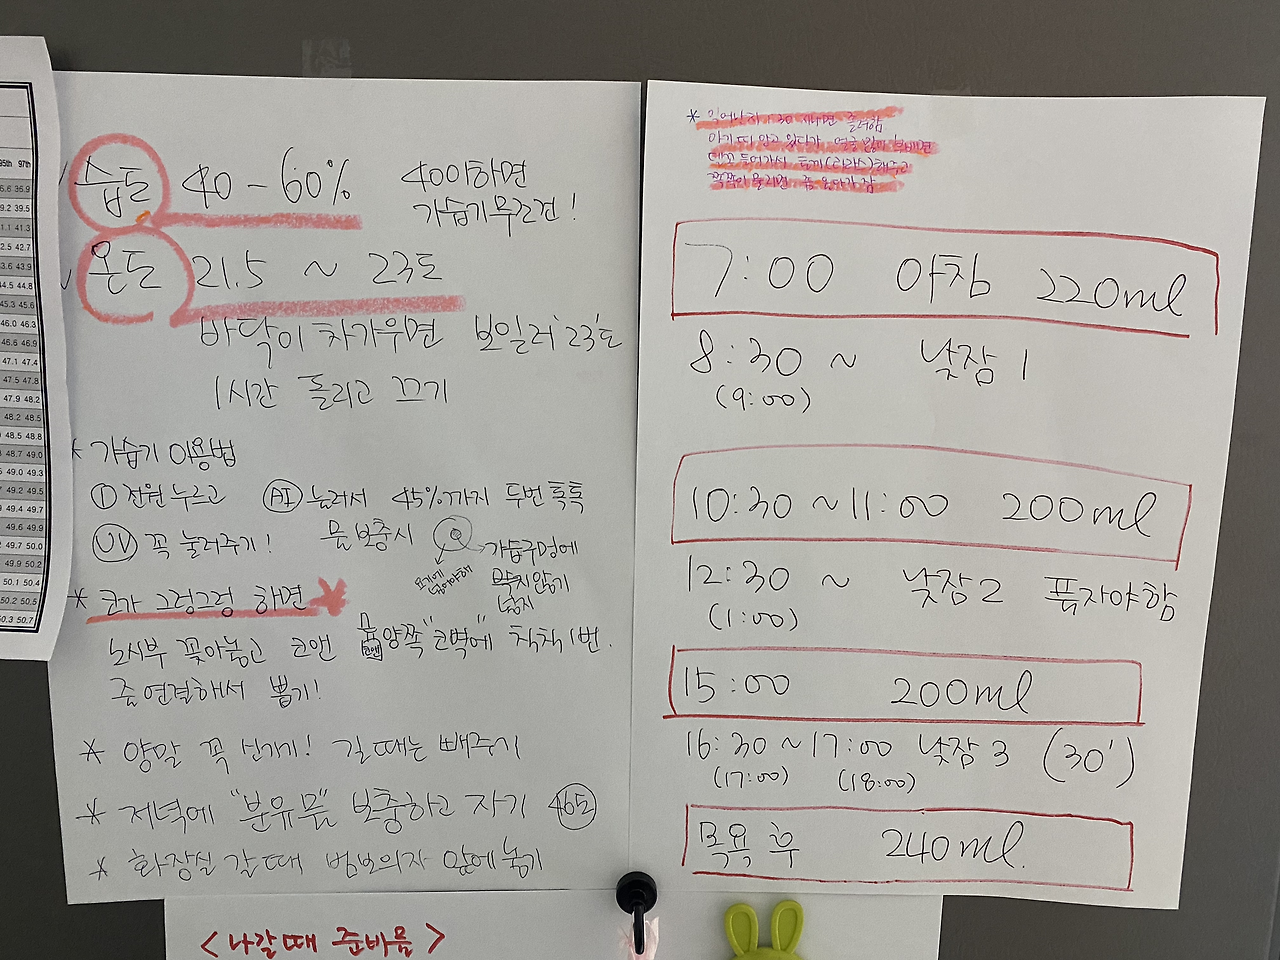 95th 97th
6.6 36.9
9.2 39.5
1.1 41.3
2.5 42.7
3.6 43.9
44.5 44.8
45.3 45.6
46.0 46.3
46.6 46.9
47.1 47.4
47.5 47.8
47.9 48.2
48.2 48.5
48.5 48.8
48.7 49.0
49.0 49.3
49.2 49.5
49.4 49.7
49.6 49.9
49.7 50.0
49.9 50.2
50.1 50.4
50.2 50.5
50.3 50.7
습도 40 - 60% 40이하면
가습기 무조건!
온도 21.5 ~ 23도
바닥이 차가우면 보일러 '23'도
1시간 돌리고 끄기
* 가습기 이용법
① 전원 누르고 AI 눌러서 45%까지 두번 톡톡
UV 꼭 눌러주기! 물 보충시
가습구멍에
넣지
* 코가 그렁그렁 하면
노시부 꽂아놓고 코앤 양쪽 "코벽에" 칙칙 1번.
줄 연결해서 뽑기!
* 양말 꼭 신기기! 잘 때는 빼주기
* 저녁에 "분유물" 보충하고 자기 46도
* 화장실 갈 때 범보의자 앞에 놓기
<나갈때 준비물>
* 일어난지 1:30 지나면 졸려함
아기띠 안고 있다가 얼굴 많이 부비면
7:00 아침 220ml
8:30 ~ 낮잠 1
(9:00)
10:30 ~ 11:00 200ml
12:30 ~ 낮잠 2 푹자야함
(1:00)
15:00 200ml
16:30 ~ 17:00 낮잠 3 (30')
(17:00) (18:00)
목욕 후 240ml.